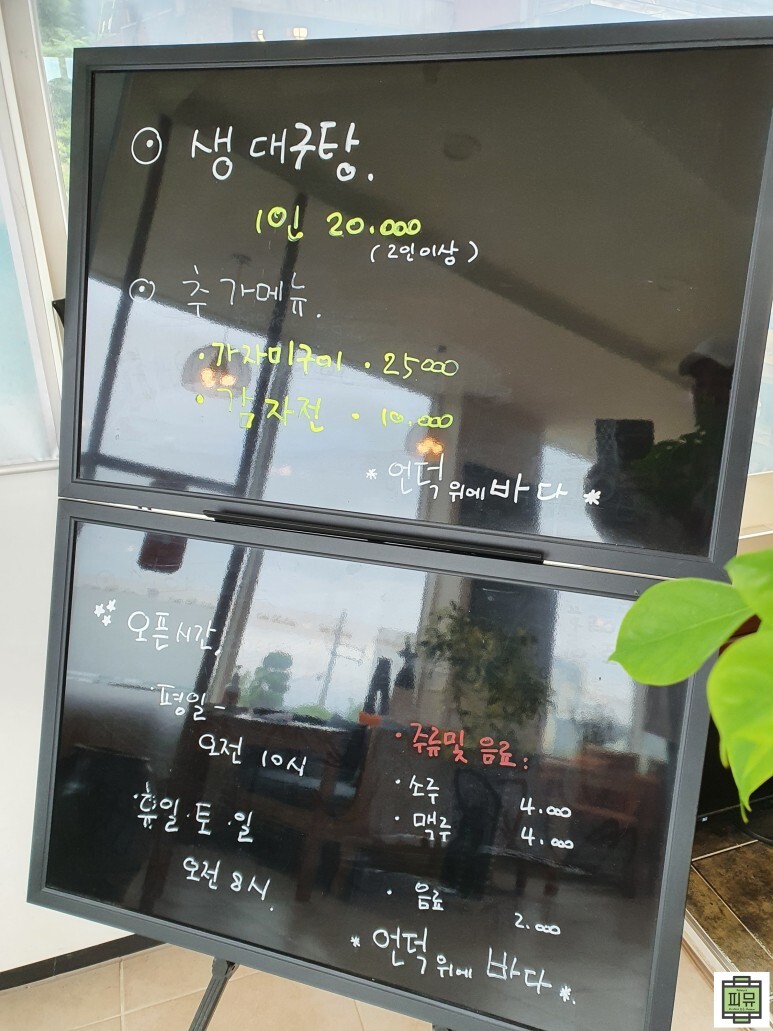 ⊙ 생대구탕.
1인 20.000
(2인이상)
⊙ 추가메뉴.
·가자미구이 · 25000
·감자전 · 10.000
* 언덕위에바다 *
오픈시간,
·평일-
오전 10시
·휴일·토·일
오전 8시.
·주류및 음료:
·소주 4.000
·맥주 4.000
·음료 2.000
* 언덕위에 바다 *.
피뮤